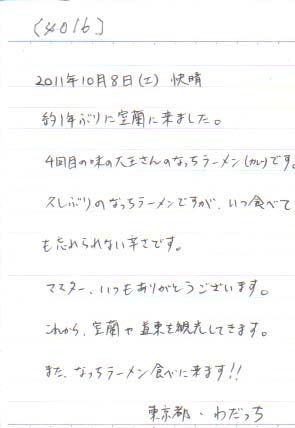 〔4016〕
2011年10月8日(土) 快晴
約1年ぶりに室蘭に来ました。
4回目の味の大王さんのなっちラーメン(カレー)です。
久しぶりのなっちラーメンですが、いつ食べて
も忘れられない辛さです。
マスター、いつもありがとうございます。
これから、室蘭や道東を観光してきます。
また、なっちラーメン食べに来ます!!
東京都・わだっち